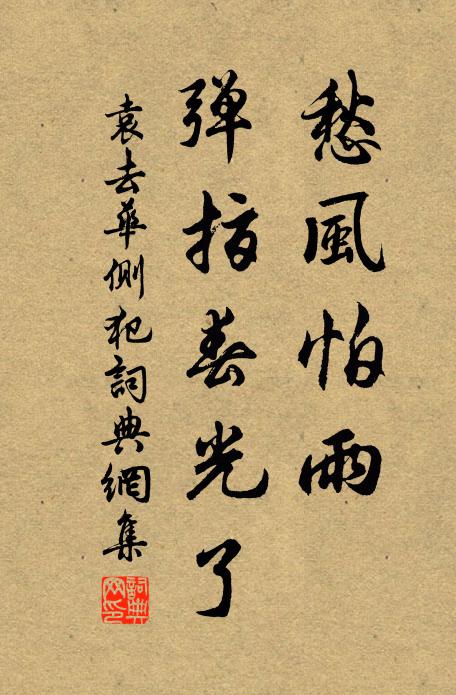 愁風怕雨
彈指春光了
袁去華側犯詞典網集
詞典網印